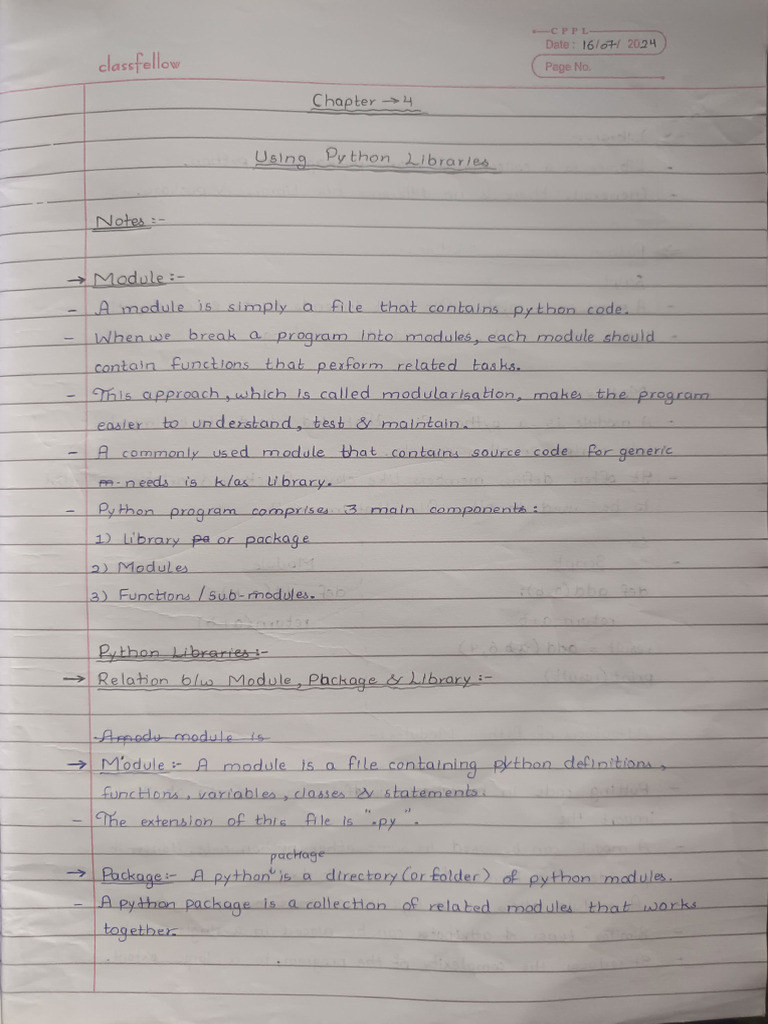 CPPL
classfellow
Date : 16/07/2024
Page No.
Chapter → 4
Using Python Libraries
Notes :-
→ Module :-
- A module is simply a file that contains python code.
- When we break a program into modules, each module should
contain functions that perform related tasks.
- This approach, which is called modularisation, makes the program
easier to understand, test & maintain.
- A commonly used module that contains source code for generic
m needs is k/as library.
- Python program comprises 3 main components :
1) Library pa or package
2) Modules
3) Functions / sub-modules.
Python Libraries :-
→ Relation b/w Module, Package & Library :-
A modu module is
→ Module :- A module is a file containing python definitions,
functions, variables, classes & statements.
- The extension of this file is ".py".
package
→ Package :- A python is a directory (or folder) of python modules.
- A python package is a collection of related modules that works
together.